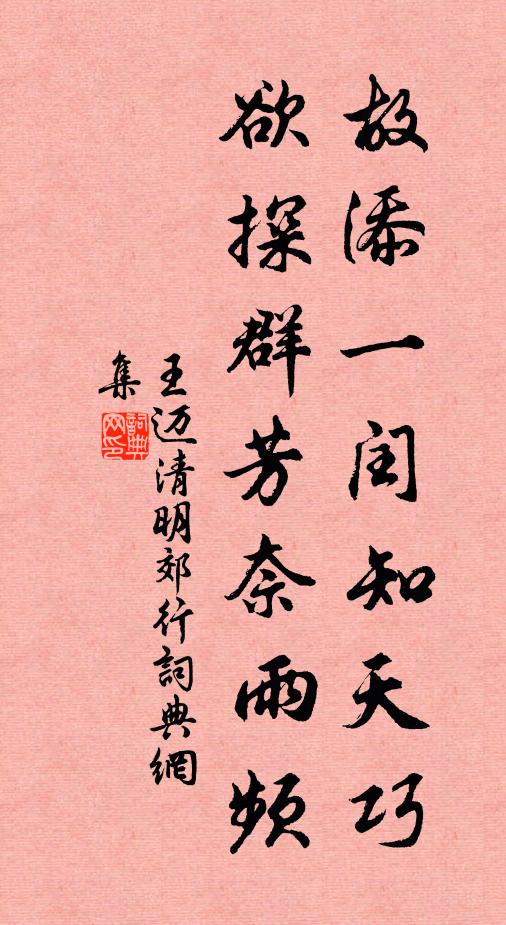 故添一闰知天巧
欲探群芳奈雨频
王迈清明郊行詞典網
集
詞典
网印